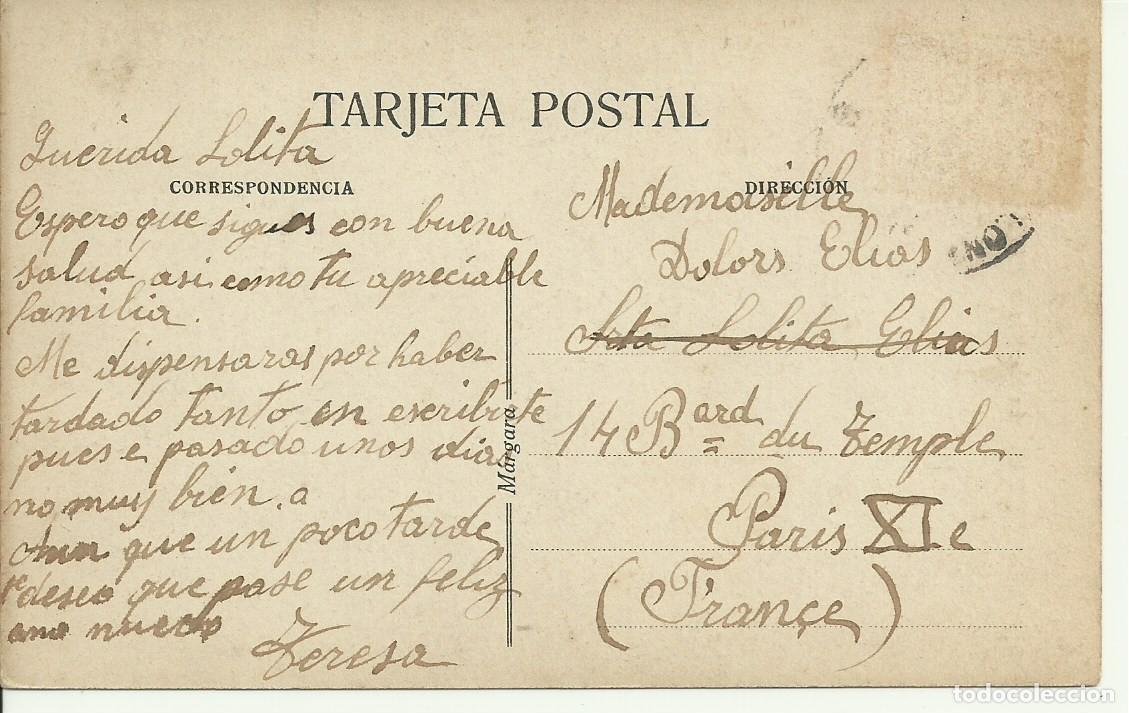 TARJETA POSTAL
CORRESPONDENCIA
Querida Lolita
Espero que sigues con buena
salud, asi, como tu apreciable
familia.
Me dispensaras por haber
tardado tanto en escribirte
pues e pasado unos dias
no muy bien. a
Aun que un poco tarde
te deseo que pase un feliz
ano nuevo
Teresa
Márgara
DIRECCIÓN
Mademoiselle
Dolors Elias
Srta Lolita Elias
14 Bard du Temple
Paris XIe
(Françe)
todocoleccion